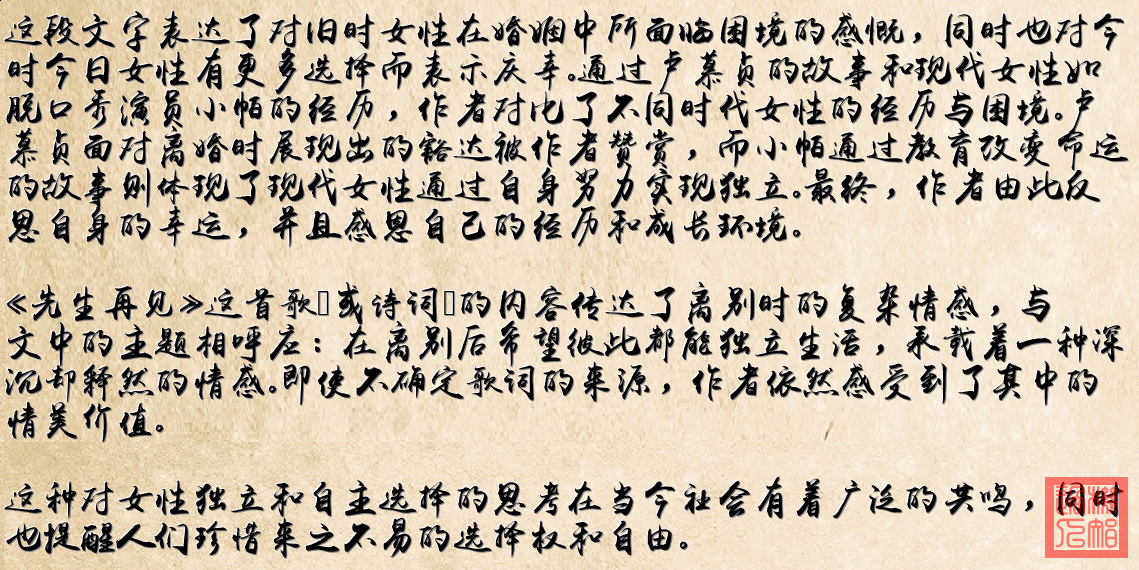 这段文字表达了对旧时女性在婚姻中所面临困境的感慨，同时也对今
时今日女性有更多选择而表示庆幸。通过卢慕贞的故事和现代女性如
脱口秀演员小帕的经历，作者对比了不同时代女性的经历与困境。卢
慕贞面对离婚时展现出的豁达被作者赞赏，而小帕通过教育改变命运
的故事则体现了现代女性通过自身努力实现独立。最终，作者由此反
思自身的幸运，并且感恩自己的经历和成长环境。
《先生再见》这首歌▯或诗词▯的内容传达了离别时的复杂情感，与
文中的主题相呼应：在离别后希望彼此都能独立生活，承载着一种深
沉却释然的情感。即使不确定歌词的来源，作者依然感受到了其中的
情美价值。
这种对女性独立和自主选择的思考在当今社会有着广泛的共鸣，同时
也提醒人们珍惜来之不易的选择权和自由。